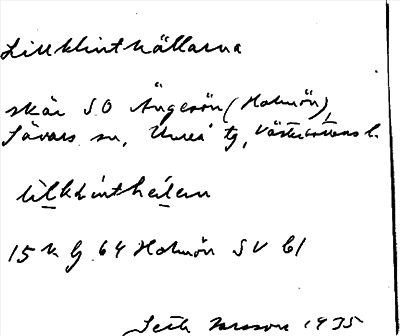 Lillklinthällarna
skär SO Ängesön (Holmön),
Sävars sn, Umeå tg, Västerbottens l.
lìlkḷinthèḷen
15 k 64 Holmön SV bl
1935